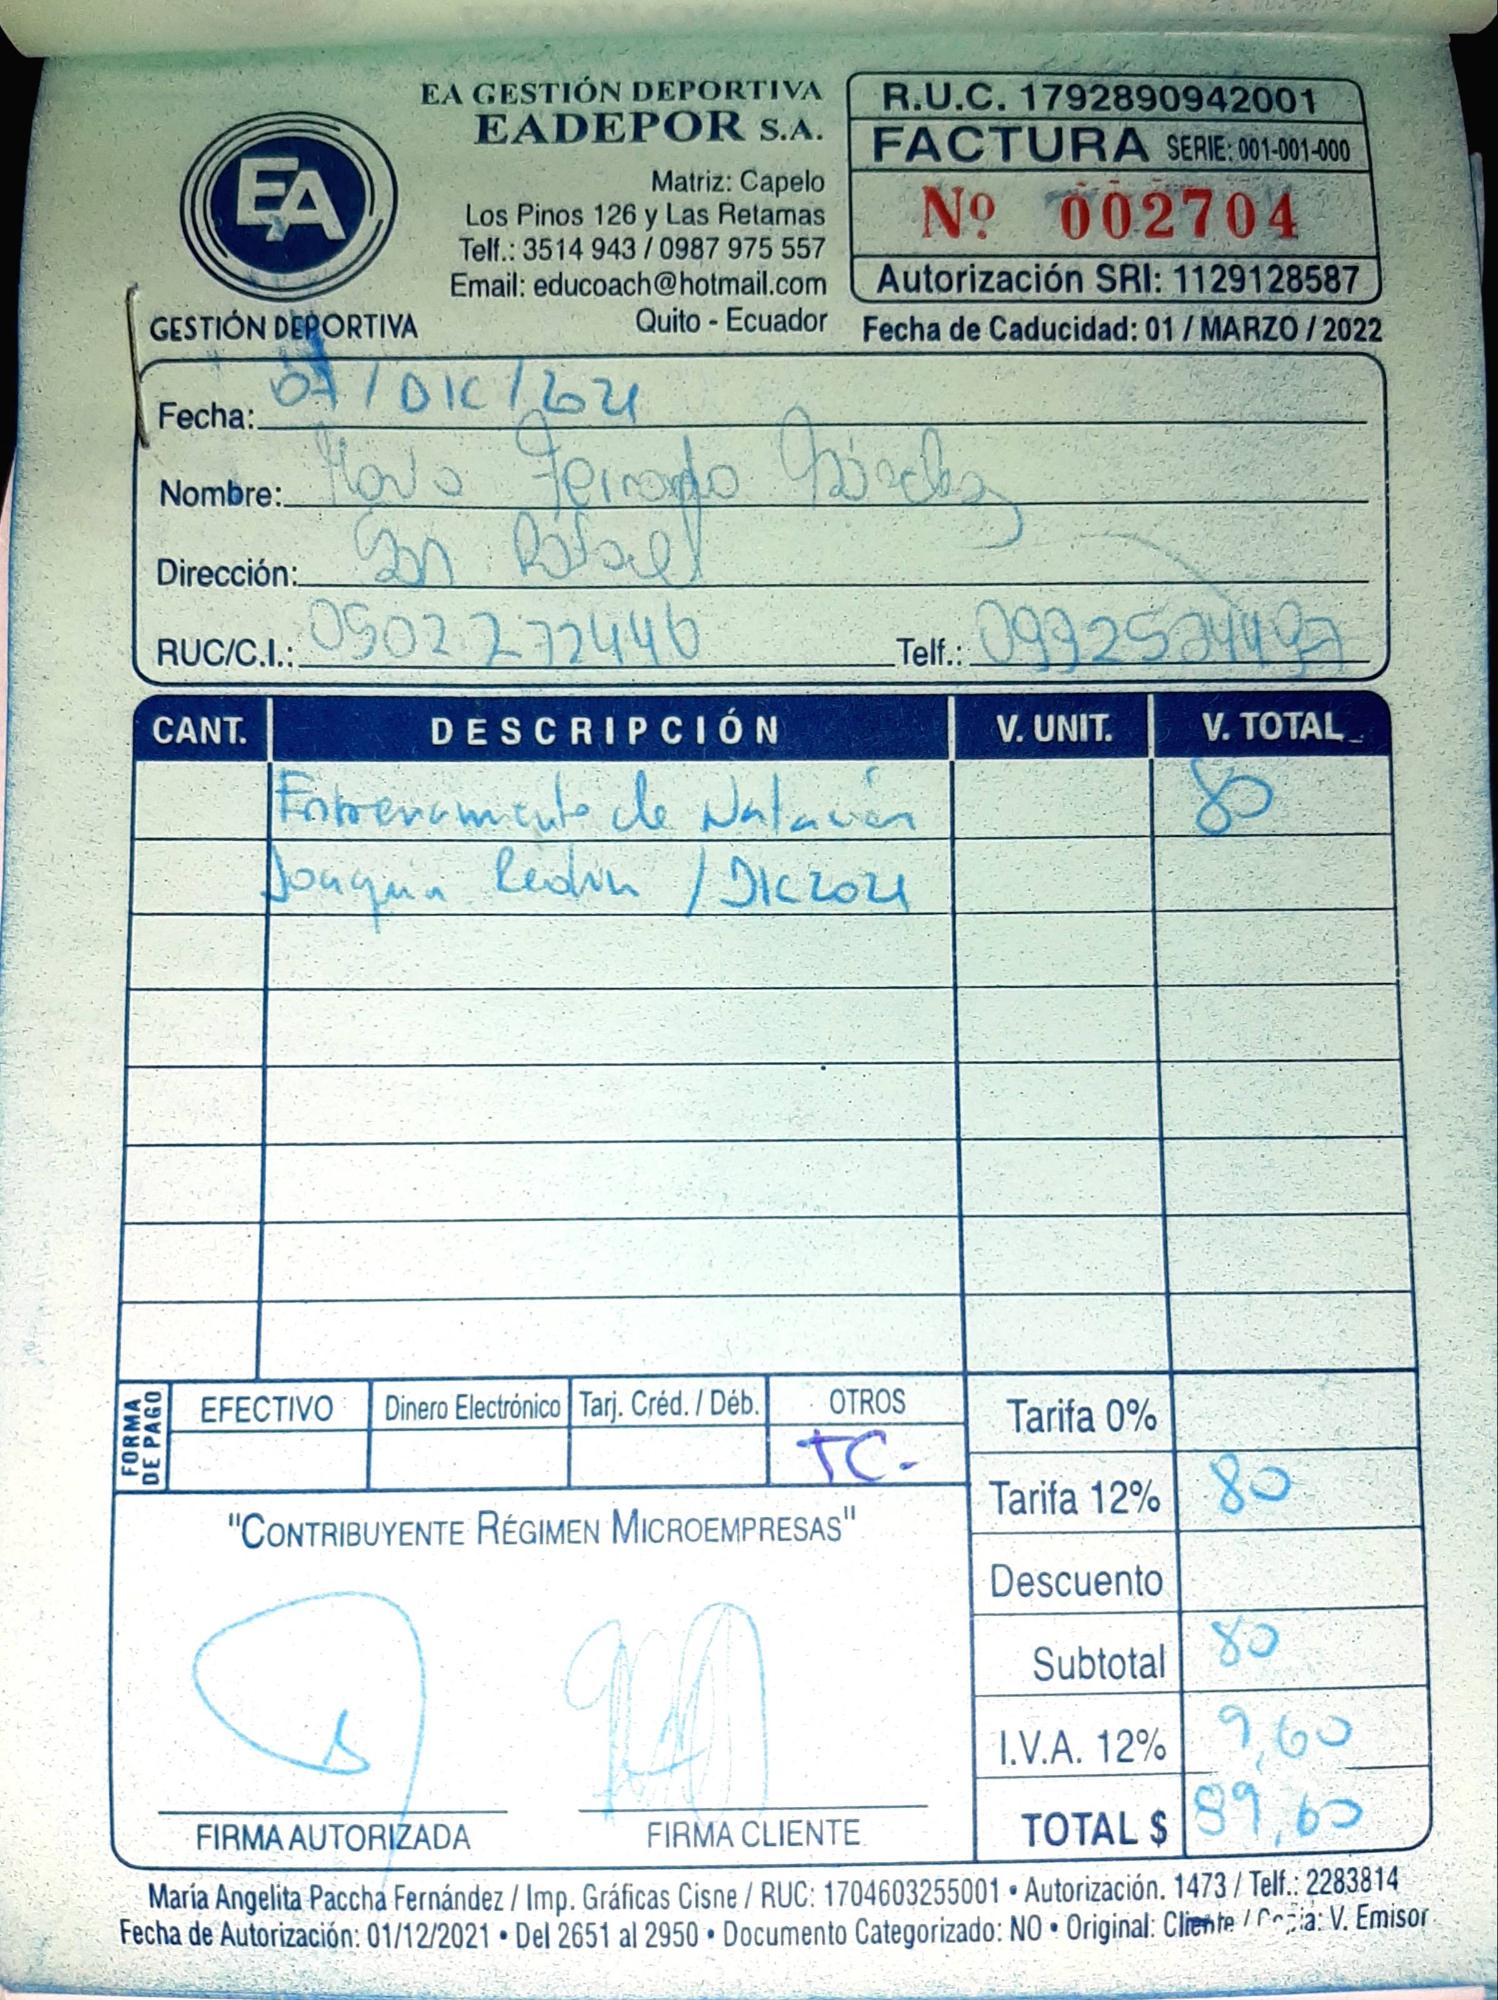 EA GESTIÓN DEPORTIVA
EADEPOR S.A.
Matriz: Capelo
Los Pinos 126 y Las Retamas
Telf.: 3514 943 / 0987 975 557
Email: educoach@hotmail.com
Quito - Ecuador
EA
GESTIÓN DEPORTIVA
R.U.C. 1792890942001
FACTURA SERIE: 001-001-000
Nº 002704
Autorización SRI: 1129128587
Fecha de Caducidad: 01 / MARZO / 2022
Fecha: 07 / DIC / 2021
Nombre: Fernando
Dirección: San Rafael
RUC/C.I.: 0502272446 Telf.:
CANT. DESCRIPCIÓN V. UNIT. V. TOTAL
Entrenamiento de Natación 80
Joaquin / DIC 2021
FORMA DE PAGO EFECTIVO Dinero Electrónico Tarj. Créd. / Déb. OTROS
TC.
Tarifa 0%
Tarifa 12% 80
Descuento
Subtotal 80
I.V.A. 12% 9,60
TOTAL $ 89,60
"CONTRIBUYENTE RÉGIMEN MICROEMPRESAS"
FIRMA AUTORIZADA FIRMA CLIENTE
María Angelita Paccha Fernández / Imp. Gráficas Cisne / RUC: 1704603255001 • Autorización. 1473 / Telf.: 2283814
Fecha de Autorización: 01/12/2021 • Del 2651 al 2950 • Documento Categorizado: NO • Original: Cliente / Copia: V. Emisor